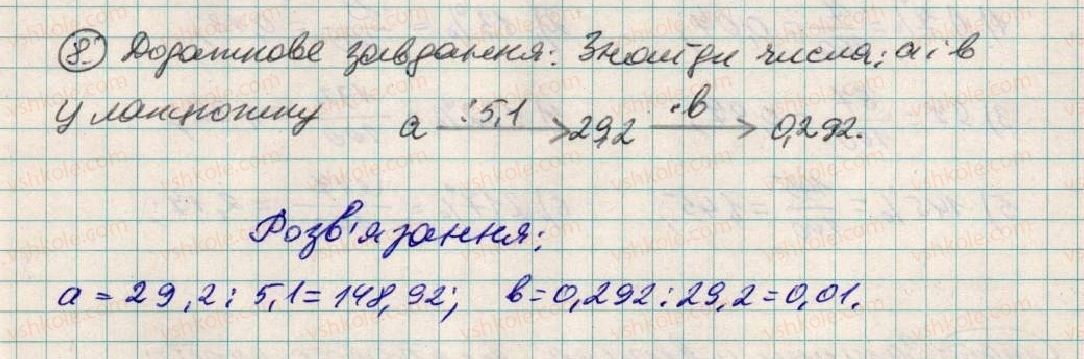 8. Додаткове завдання: Знайди числа; а і в
у ланцюжку а :5,1 > 29,2 ·в > 0,292.
Розв'язання:
а = 29,2 : 5,1 = 148,92; в = 0,292 : 29,2 = 0,01.